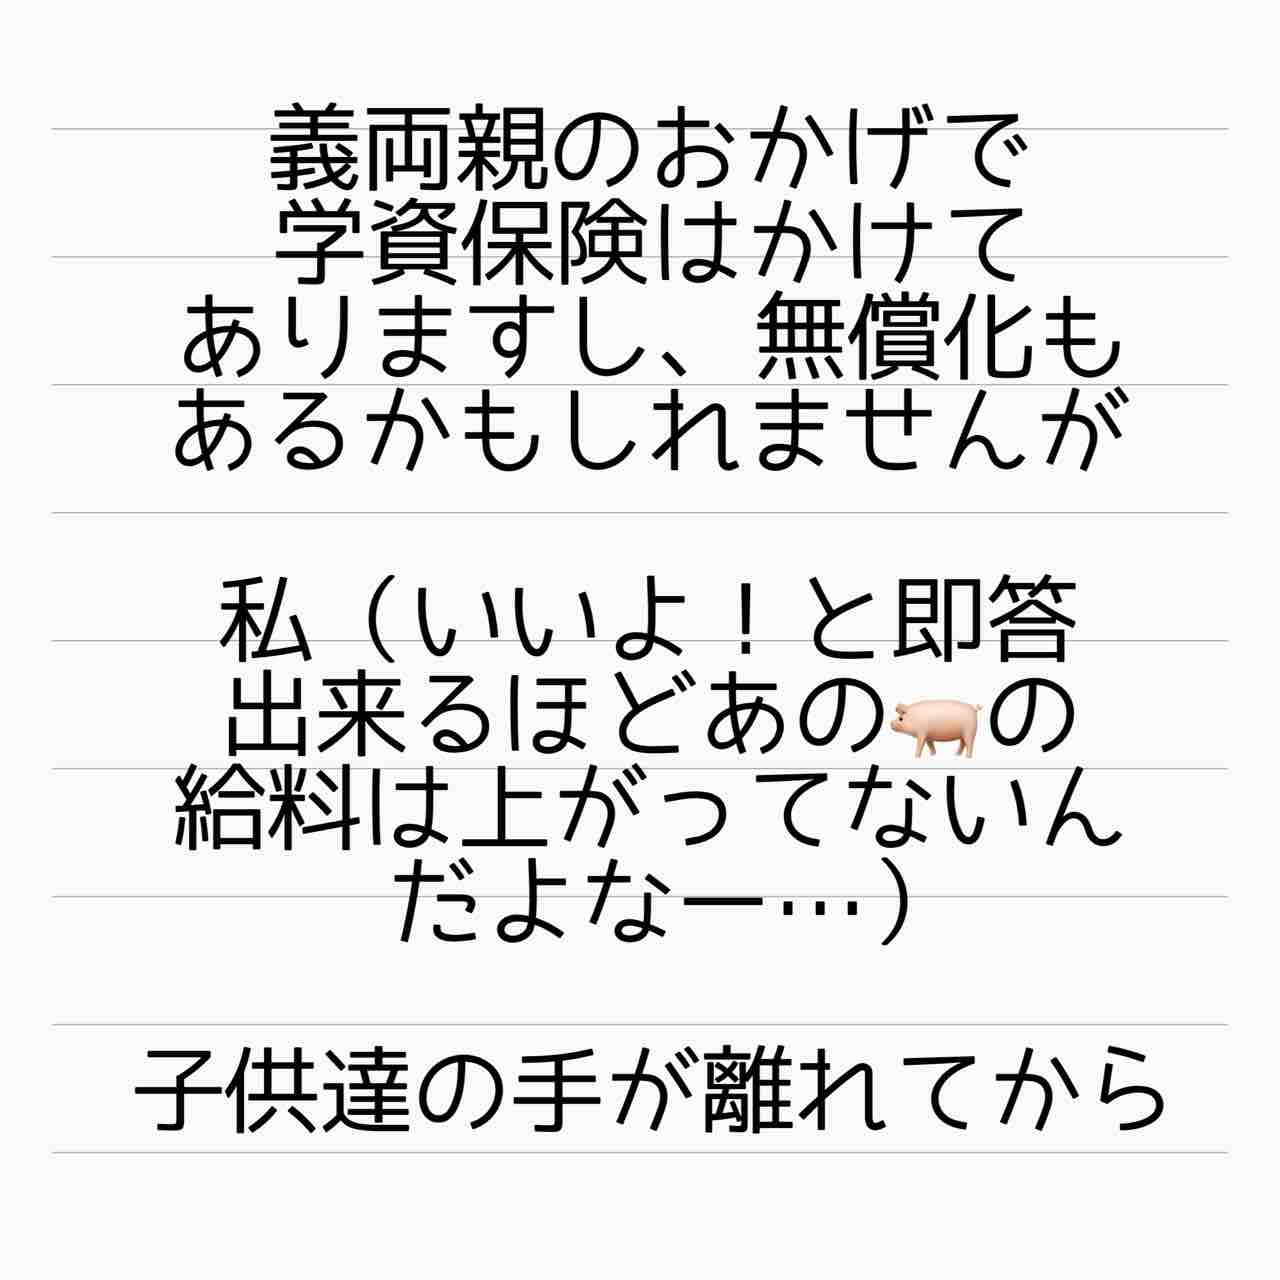 義両親のおかげで
学資保険はかけて
ありますし、無償化も
あるかもしれませんが
私（いいよ！と即答
出来るほどあの🐖の
給料は上がってないん
だよなー…）
子供達の手が離れてから